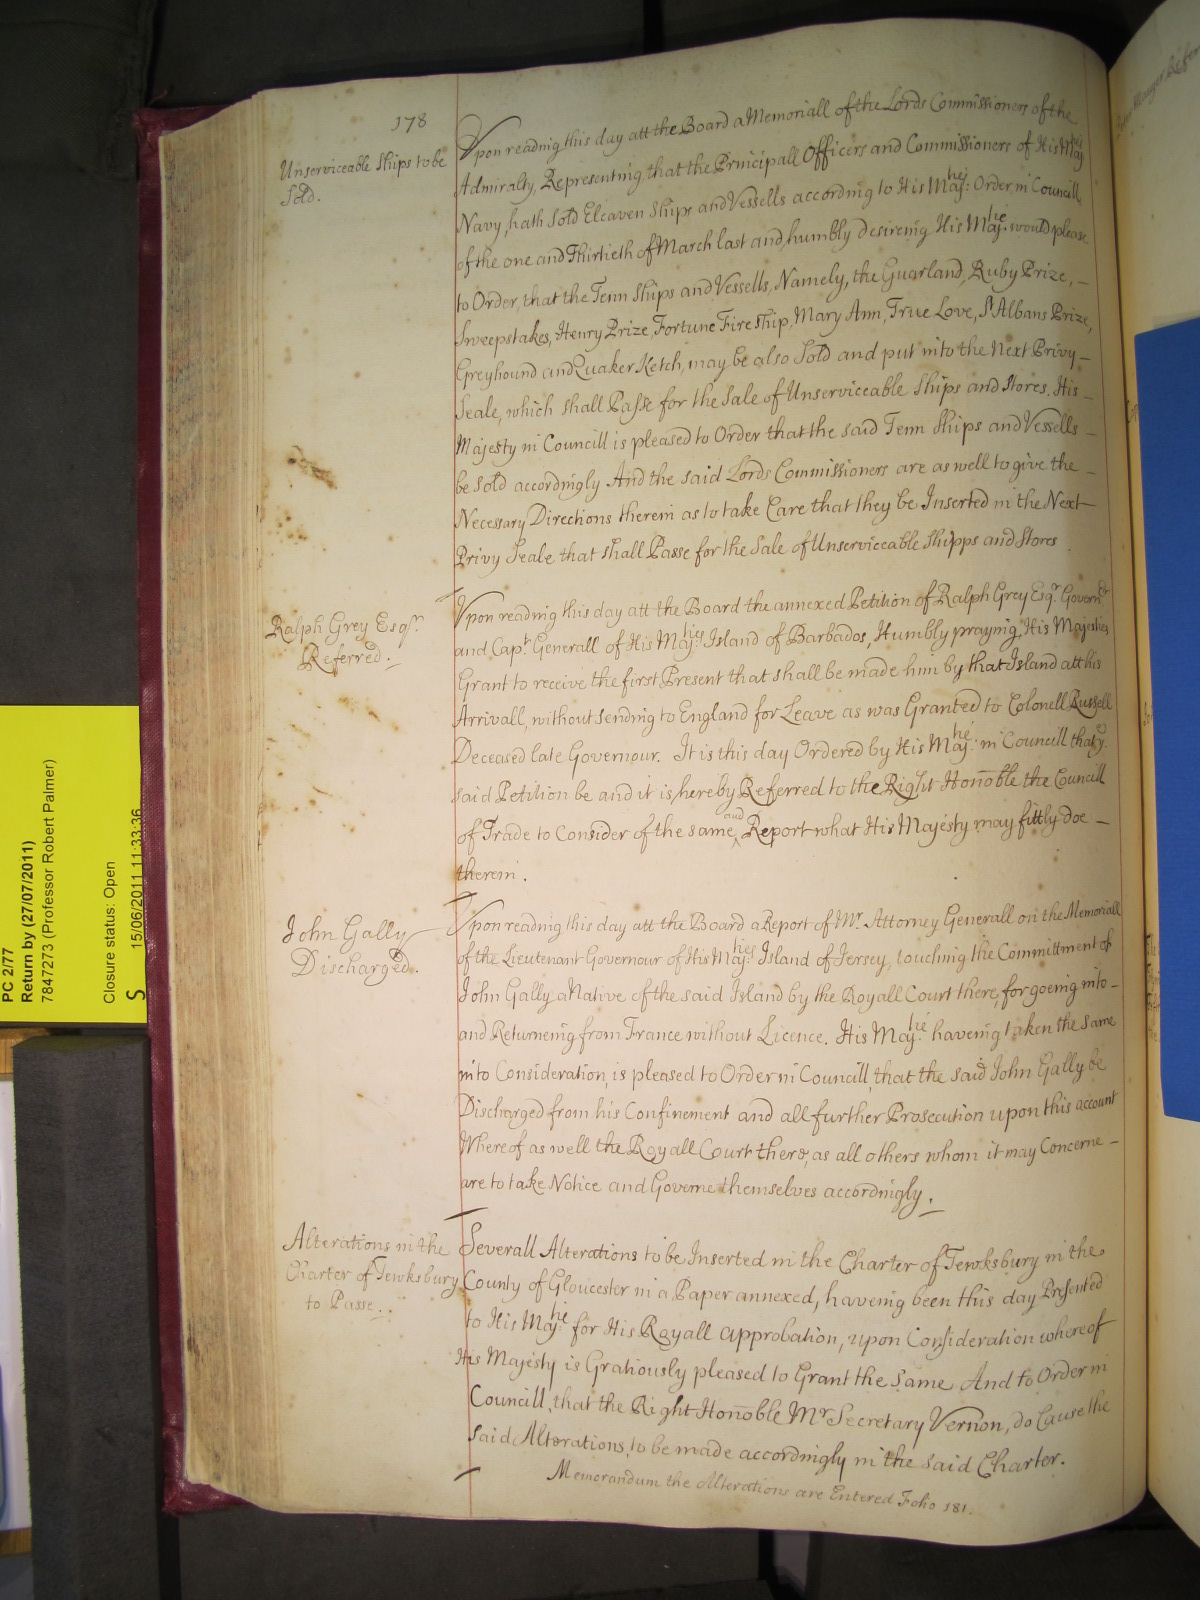 178
Unserviceable Ships to be
Sold.
Upon reading this day att the Board a Memoriall of the Lords Commissioners of the
Admiralty, Representing that the Principall Officers and Commissioners of His Maj:ties
Navy, hath Sold Eleaven Ships and Vessells according to His Maj:ties Order in Councill
of the one and Thirtieth of March last and humbly desireing His Maj:tie would please
to Order, that the Tenn Ships and Vessells, Namely, the Guarland, Ruby Prize, –
Sweepstakes, Henry Prize, Fortune Fire ship, Mary Ann, True Love, St Albans Prize,
Greyhound and Quaker Ketch, may be also Sold and put into the Next Privy –
Seale, which shall Passe for the Sale of Unserviceable Ships and Stores. His –
Majesty in Councill is pleased to Order that the said Tenn Ships and Vessells –
be Sold accordingly And the said Lords Commissioners are as well to give the –
Necessary Directions therein as to take Care that they be Inserted in the Next –
Privy Seale that shall Passe for the Sale of Unserviceable Shipps and Stores
Ralph Grey Esqr.
Referred.
Upon reading this day att the Board the annexed Petition of Ralph Grey Esqr. Governr
and Capt. Generall of His Maj:ties Island of Barbados, Humbly praying His Majesties
Grant to receive the first Present that shall be made him by that Island att his
Arrivall, without sending to England for Leave as was Granted to Colonell Russell
Deceased late Governour. It is this day Ordered by His Maj:tie in Councill that ye
said Petition be and it is hereby Referred to the Right Honoble the Councill
of Trade to Consider of the same, and Report what His Majesty may fittly doe –
therein.
John Gally
Discharged.
Upon reading this day att the Board a Report of Mr. Attorney Generall on the Memoriall
of the Lieutenant Governour of His Maj:ties Island of Jersey, touching the Committment of
John Gally a Native of the said Island by the Royall Court there, for goeing into –
and Returneing from France without Licence. His Maj:tie haveing taken the same
into Consideration, is pleased to Order in Councill, that the said John Gally be
Discharged from his Confinement and all further Prosecution upon this account
Whereof as well the Royall Court there, as all others whom it may Concerne –
are to take Notice and Governe themselves accordingly.
Alterations in the
Charter of Tewksbury
to Passe.
Severall Alterations to be Inserted in the Charter of Tewksbury in the
County of Gloucester in a Paper annexed, haveing been this day Presented
to His Maj:tie for His Royall approbation, upon Consideration whereof
His Majesty is Gratiously pleased to Grant the Same And to Order in
Councill, that the Right Honoble Mr Secretary Vernon, do Cause the
said Alterations, to be made accordingly in the said Charter.
Memorandum the Alterations are Entered Folio 181.
PC 2/77
Return by (27/07/2011)
7847273 (Professor Robert Palmer)
Closure status: Open
S
15/06/2011 11:33:36